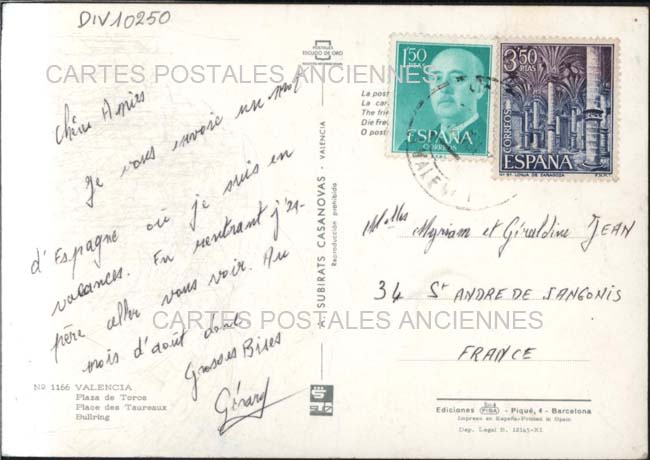 DIV10250
CARTES POSTALES ANCIENNES
Chères Amies
Je vous envoie un mot
d'Espagne où je suis en
vacances. En rentrant j'es-
père aller vous voir. Au
mois d'août donc
Grosses Bises
Gérard
Nº 1166 VALENCIA
Plaza de Toros
Place des Taureaux
Bullring
POSTALES
ESCUDO DE ORO
A. SUBIRATS CASANOVAS - VALENCIA
Reproducción prohibida
La post
La car
The fri
Die Fre
O post
1'50 PTAS
ESPAÑA
CORREOS
3'50 PTAS
CORREOS
ESPAÑA
LONJA DE ZARAGOZA
F.N.M.T.
VALEN
Melles Myriam et Géraldine JEAN
34 St ANDRE DE SANGONIS
FRANCE
CARTES POSTALES ANCIENNES
Ediciones FISA - Piqué, 4 - Barcelona
Impreso en España-Printed in Spain
Dep. Legal B. 12145-XI